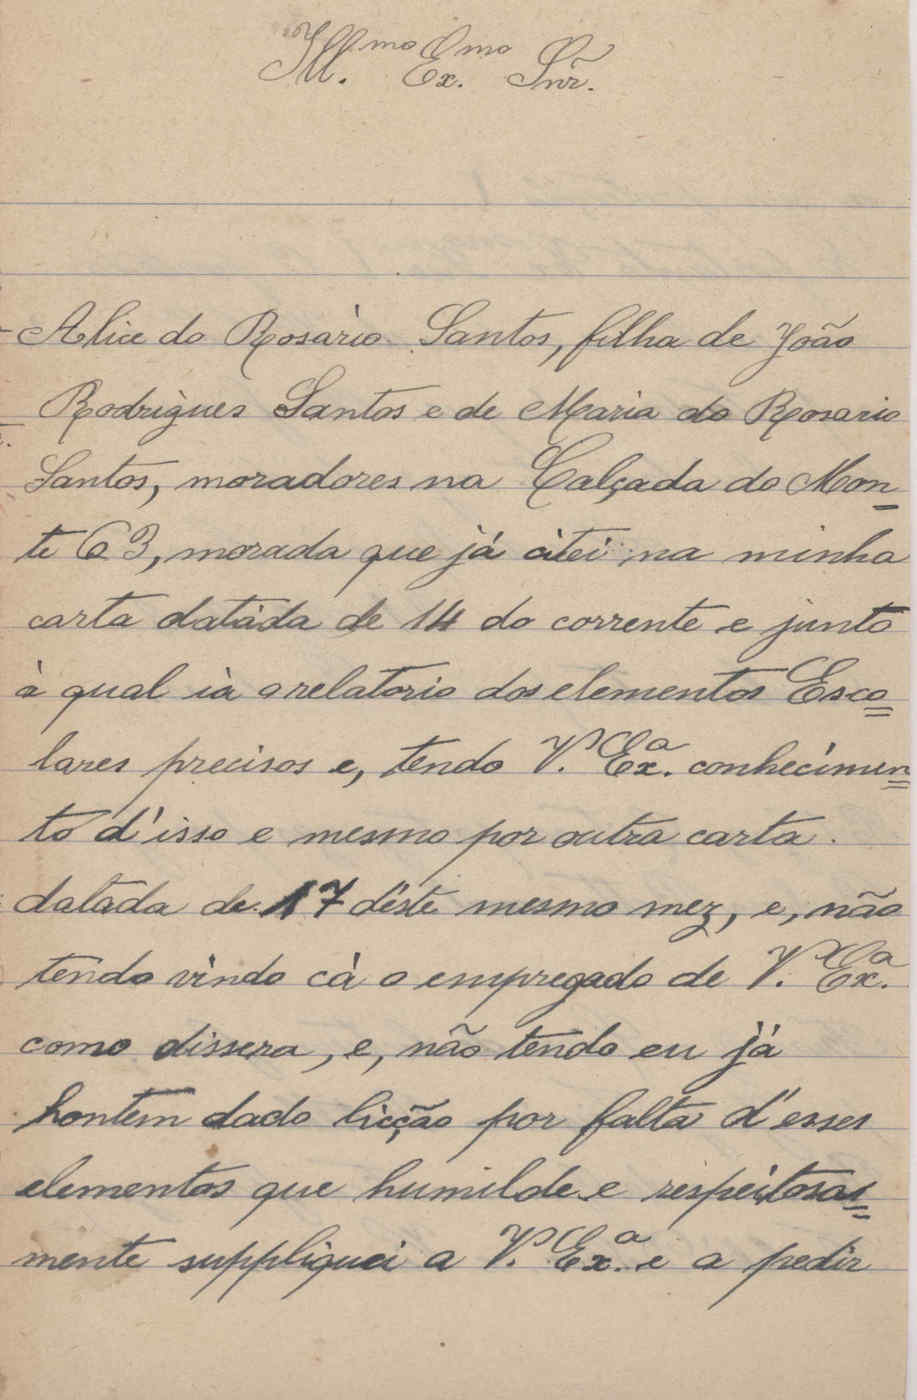 Ill.mo Ex.mo Snr.
Alice do Rosário Santos, filha de João
Rodrigues Santos e de Maria do Rosario
Santos, moradores na Calçada do Mon-
te 63, morada que já citei na minha
carta datáda de 14 do corrente e junto
à qual ia o relatorio dos elementos Esco=
lares precisos e, tendo V. Ex.a conhecimen=
to d'isso e mesmo por outra carta
datada de 17 déste mesmo mez, e, não
tendo vindo cá o empregado de V. Ex.a
como dissera, e, não tendo eu já
hontem dado licção por falta d'esses
elementos que humilde e respeitosa=
mente suppliquei a V. Ex.a e a pedir